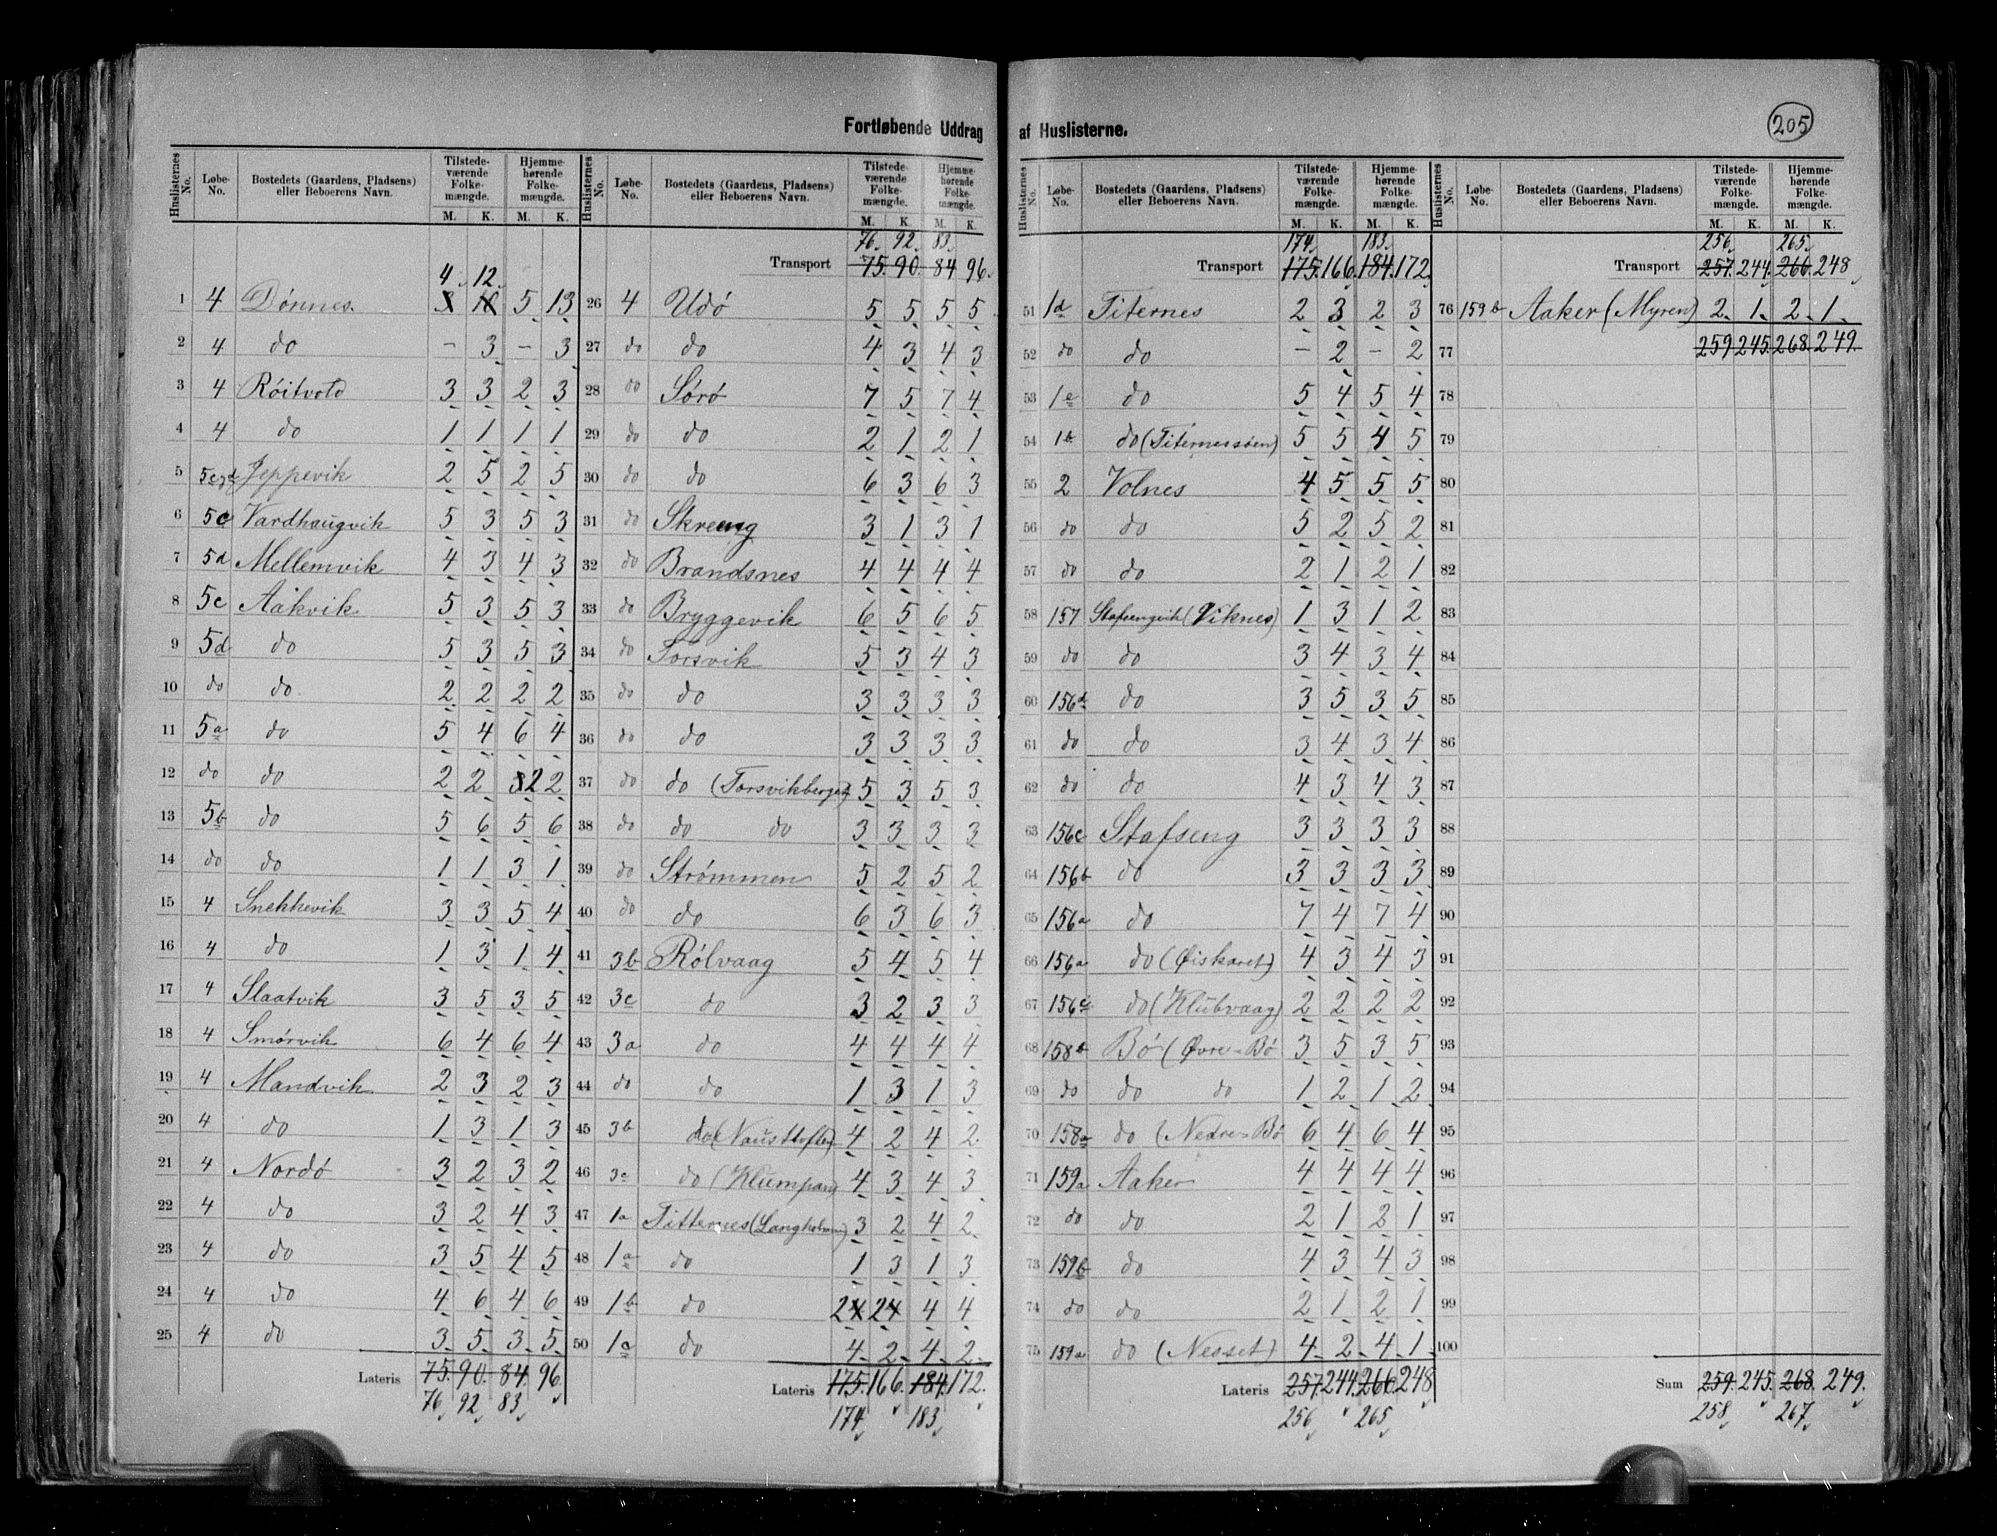 Fortløbende Uddrag af Huslisterne.
205
Huslisternes No. | Løbe-No. | Bostedets (Gaardens, Pladsens) eller Beboerens Navn. | Tilstede-værende Folke-mængde. M. K. | Hjemme-hørende Folke-mængde. M. K.
4. 12.
1 4 Dønnes. 5 13
2 4 do - 3 - 3
3 4 Røitvold 3 3 2 3
4 4 do 1 1 1 1
5 Jeppevik 2 5 2 5
6 5c Vardhaugvik 5 3 5 3
7 5d Mellemvik 4 3 4 3
8 5c Aakvik 5 3 5 3
9 5d do 5 3 5 3
10 do do 2 2 2 2
11 5a do 5 4 6 4
12 do do 2 2 2 2
13 5b do 5 6 5 6
14 do do 1 1 3 1
15 4 Snekkevik 3 3 5 4
16 4 do 1 3 1 4
17 4 Slaatvik 3 5 3 5
18 4 Smørvik 6 4 6 4
19 4 Mandvik 2 3 2 3
20 4 do 1 3 1 3
21 4 Nordø 3 2 3 2
22 4 do 3 2 4 3
23 4 do 3 5 4 5
24 4 do 4 6 4 6
25 4 do 3 5 3 5
Lateris 75. 90. 84. 96.
76 92 83
Huslisternes No. | Løbe-No. | Bostedets (Gaardens, Pladsens) eller Beboerens Navn. | Tilstede-værende Folke-mængde. M. K. | Hjemme-hørende Folke-mængde. M. K.
76. 92. 83.
Transport 75. 90. 84. 96.
26 4 Udø 5 5 5 5
27 do do 4 3 4 3
28 do Sørø 7 5 7 4
29 do do 2 1 2 1
30 do do 6 3 6 3
31 do Skreeng 3 1 3 1
32 do Brandsnes 4 4 4 4
33 do Bryggevik 6 5 6 5
34 do Torsvik 5 3 4 3
35 do do 3 3 3 3
36 do do 3 3 3 3
37 do do (Torsvikberget) 5 3 5 3
38 do do do 3 3 3 3
39 do Strømmen 5 2 5 2
40 do do 6 3 6 3
41 3b Rølvaag 5 4 5 4
42 3c do 3 2 3 3
43 3a do 4 4 4 4
44 do do 1 3 1 3
45 3b do (Nausttoften) 4 2 4 2
46 3c do 4 3 4 3
47 1a Titternes (Langholmen) 3 2 4 2
48 1a do 1 3 1 3
49 1b do 2 2 4 4
50 1a do 4 2 4 2
Lateris 175. 166. 184. 172.
174 183
Huslisternes No. | Løbe-No. | Bostedets (Gaardens, Pladsens) eller Beboerens Navn. | Tilstede-værende Folke-mængde. M. K. | Hjemme-hørende Folke-mængde. M. K.
174. 183.
Transport 175. 166. 184. 172.
51 1d Titernes 2 3 2 3
52 do do - 2 - 2
53 1e do 5 4 5 4
54 1b do (Titernessøen) 5 5 4 5
55 2 Volnes 4 5 5 5
56 do do 5 2 5 2
57 do do 2 1 2 1
58 157 Stafsengvik (Viknes) 1 3 1 2
59 do do 3 4 3 4
60 156d do 3 5 3 5
61 do do 3 4 3 4
62 do do 4 3 4 3
63 156c Stafseng 3 3 3 3
64 156b do 3 3 3 3
65 156a do 7 4 7 4
66 156a do (Øiskaret) 4 3 4 3
67 156c do (Klubvaag) 2 2 2 2
68 158b Bø (Øvre-Bø 3 5 3 5
69 do do do 1 2 1 2
70 158a do (Nedre-Bø 6 4 6 4
71 159a Aaker 4 4 4 4
72 do do 2 1 2 1
73 159b do 4 3 4 3
74 do do 2 1 2 1
75 159a do (Nesset) 4 2 4 1
Lateris 257. 244. 266. 248
256 265
Huslisternes No. | Løbe-No. | Bostedets (Gaardens, Pladsens) eller Beboerens Navn. | Tilstede-værende Folke-mængde. M. K. | Hjemme-hørende Folke-mængde. M. K.
256. 265.
Transport 257. 244. 266. 248
76 159b Aaker (Myren) 2 1 2 1
77 259. 245. 268. 249.
78
79
80
81
82
83
84
85
86
87
88
89
90
91
92
93
94
95
96
97
98
99
100
Sum 259. 245. 268. 249.
258 267